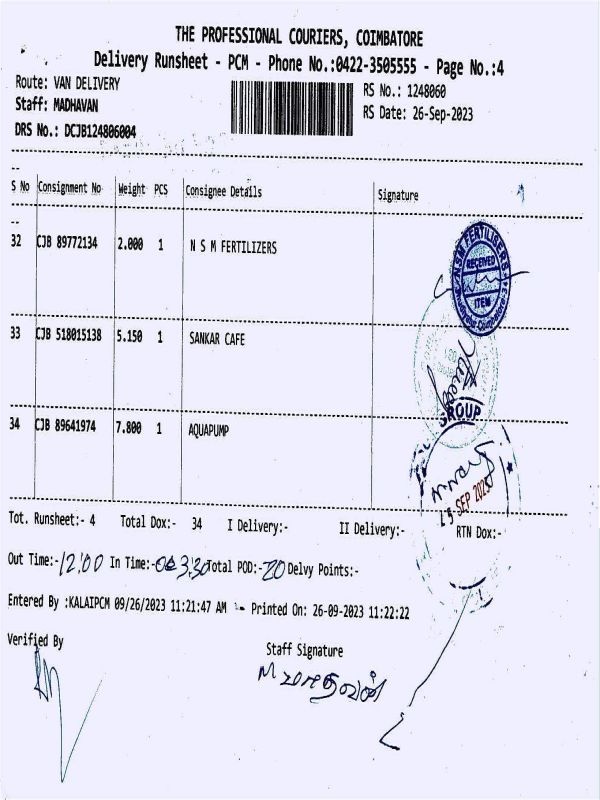 THE PROFESSIONAL COURIERS, COIMBATORE
Delivery Runsheet - PCM - Phone No.:0422-3505555 - Page No.:4
Route: VAN DELIVERY
RS No.: 1248060
Staff: MADHAVAN
RS Date: 26-Sep-2023
DRS No.: DCJB124806004
S No Consignment No Weight PCS Consignee Details Signature
32 CJB 89772134 2.000 1 N S M FERTILIZERS
NSM FERTILISERS
RECEIVED
ITEM
33 CJB 518015138 5.150 1 SANKAR CAFE
GROUP
34 CJB 89641974 7.800 1 AQUAPUMP
SEP 202
Tot. Runsheet:- 4 Total Dox:- 34 I Delivery:- II Delivery:- RTN Dox:-
Out Time:-12:00 In Time:- 3:30 Total POD:-20 Delvy Points:-
Entered By :KALAIPCM 09/26/2023 11:21:47 AM -- Printed On: 26-09-2023 11:22:22
Verified By
Staff Signature